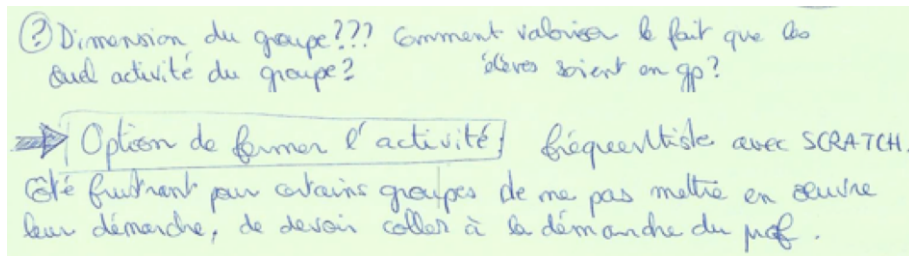 ? Dimension du groupe??? Comment valoriser le fait que les
Quel activité du groupe? élèves soient en gp?
Option de fermer l'activité! fréquentiste avec SCRATCH.
Côté frustrant pour certains groupes de ne pas mettre en œuvre
leur démarche, de devoir coller à la démarche du prof.